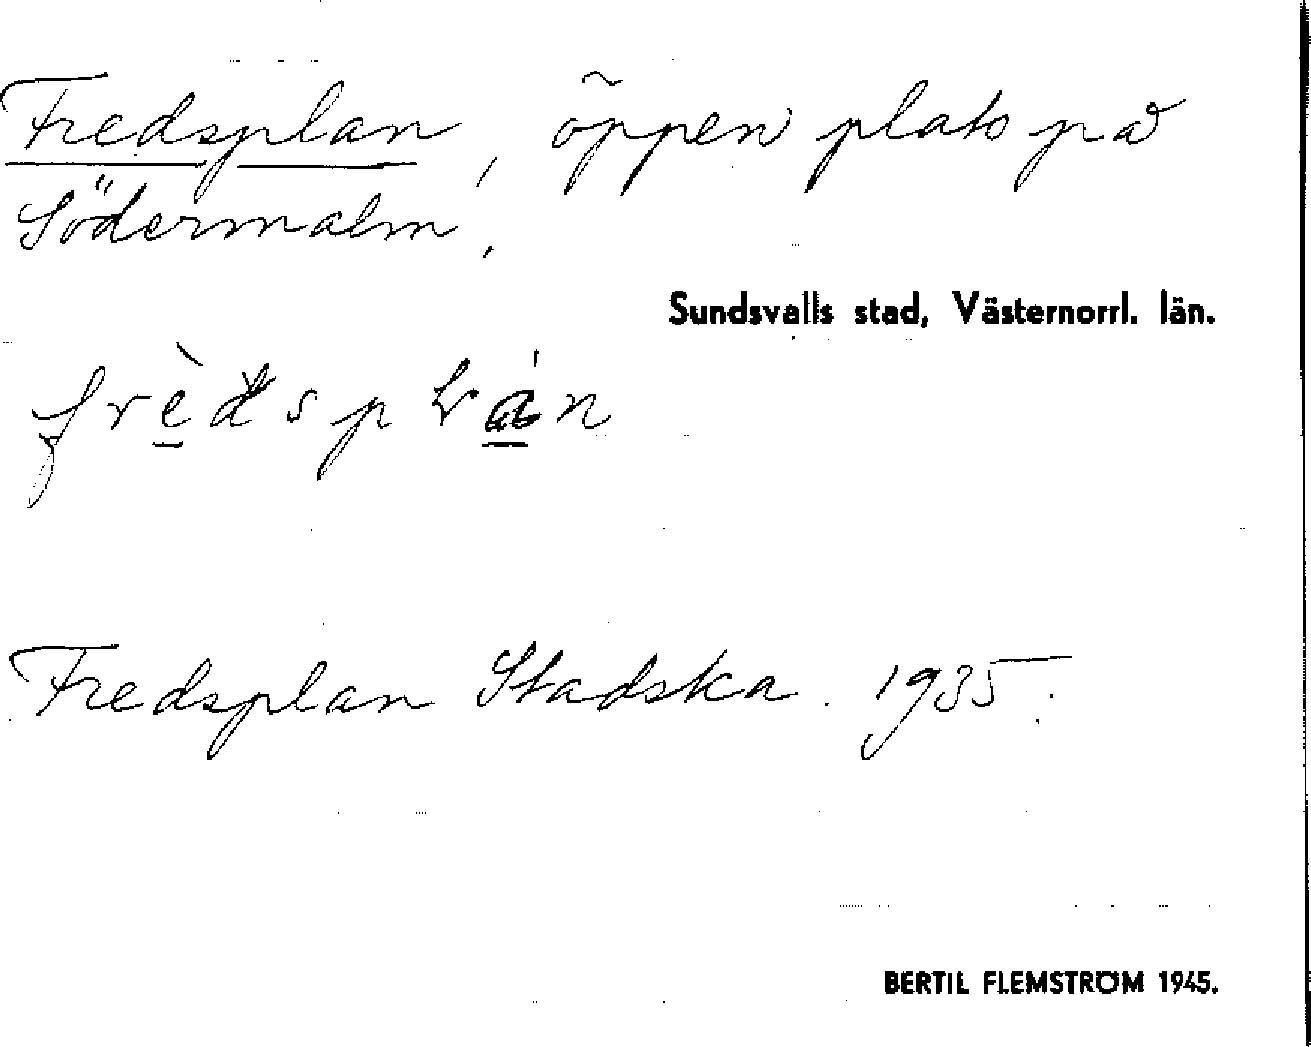 Fredsplan, öppen plats på
Södermalm,
Sundsvalls stad, Västernorrl. län.
Fredsplan Stadska. 1935.
BERTIL FLEMSTRÖM 1945.